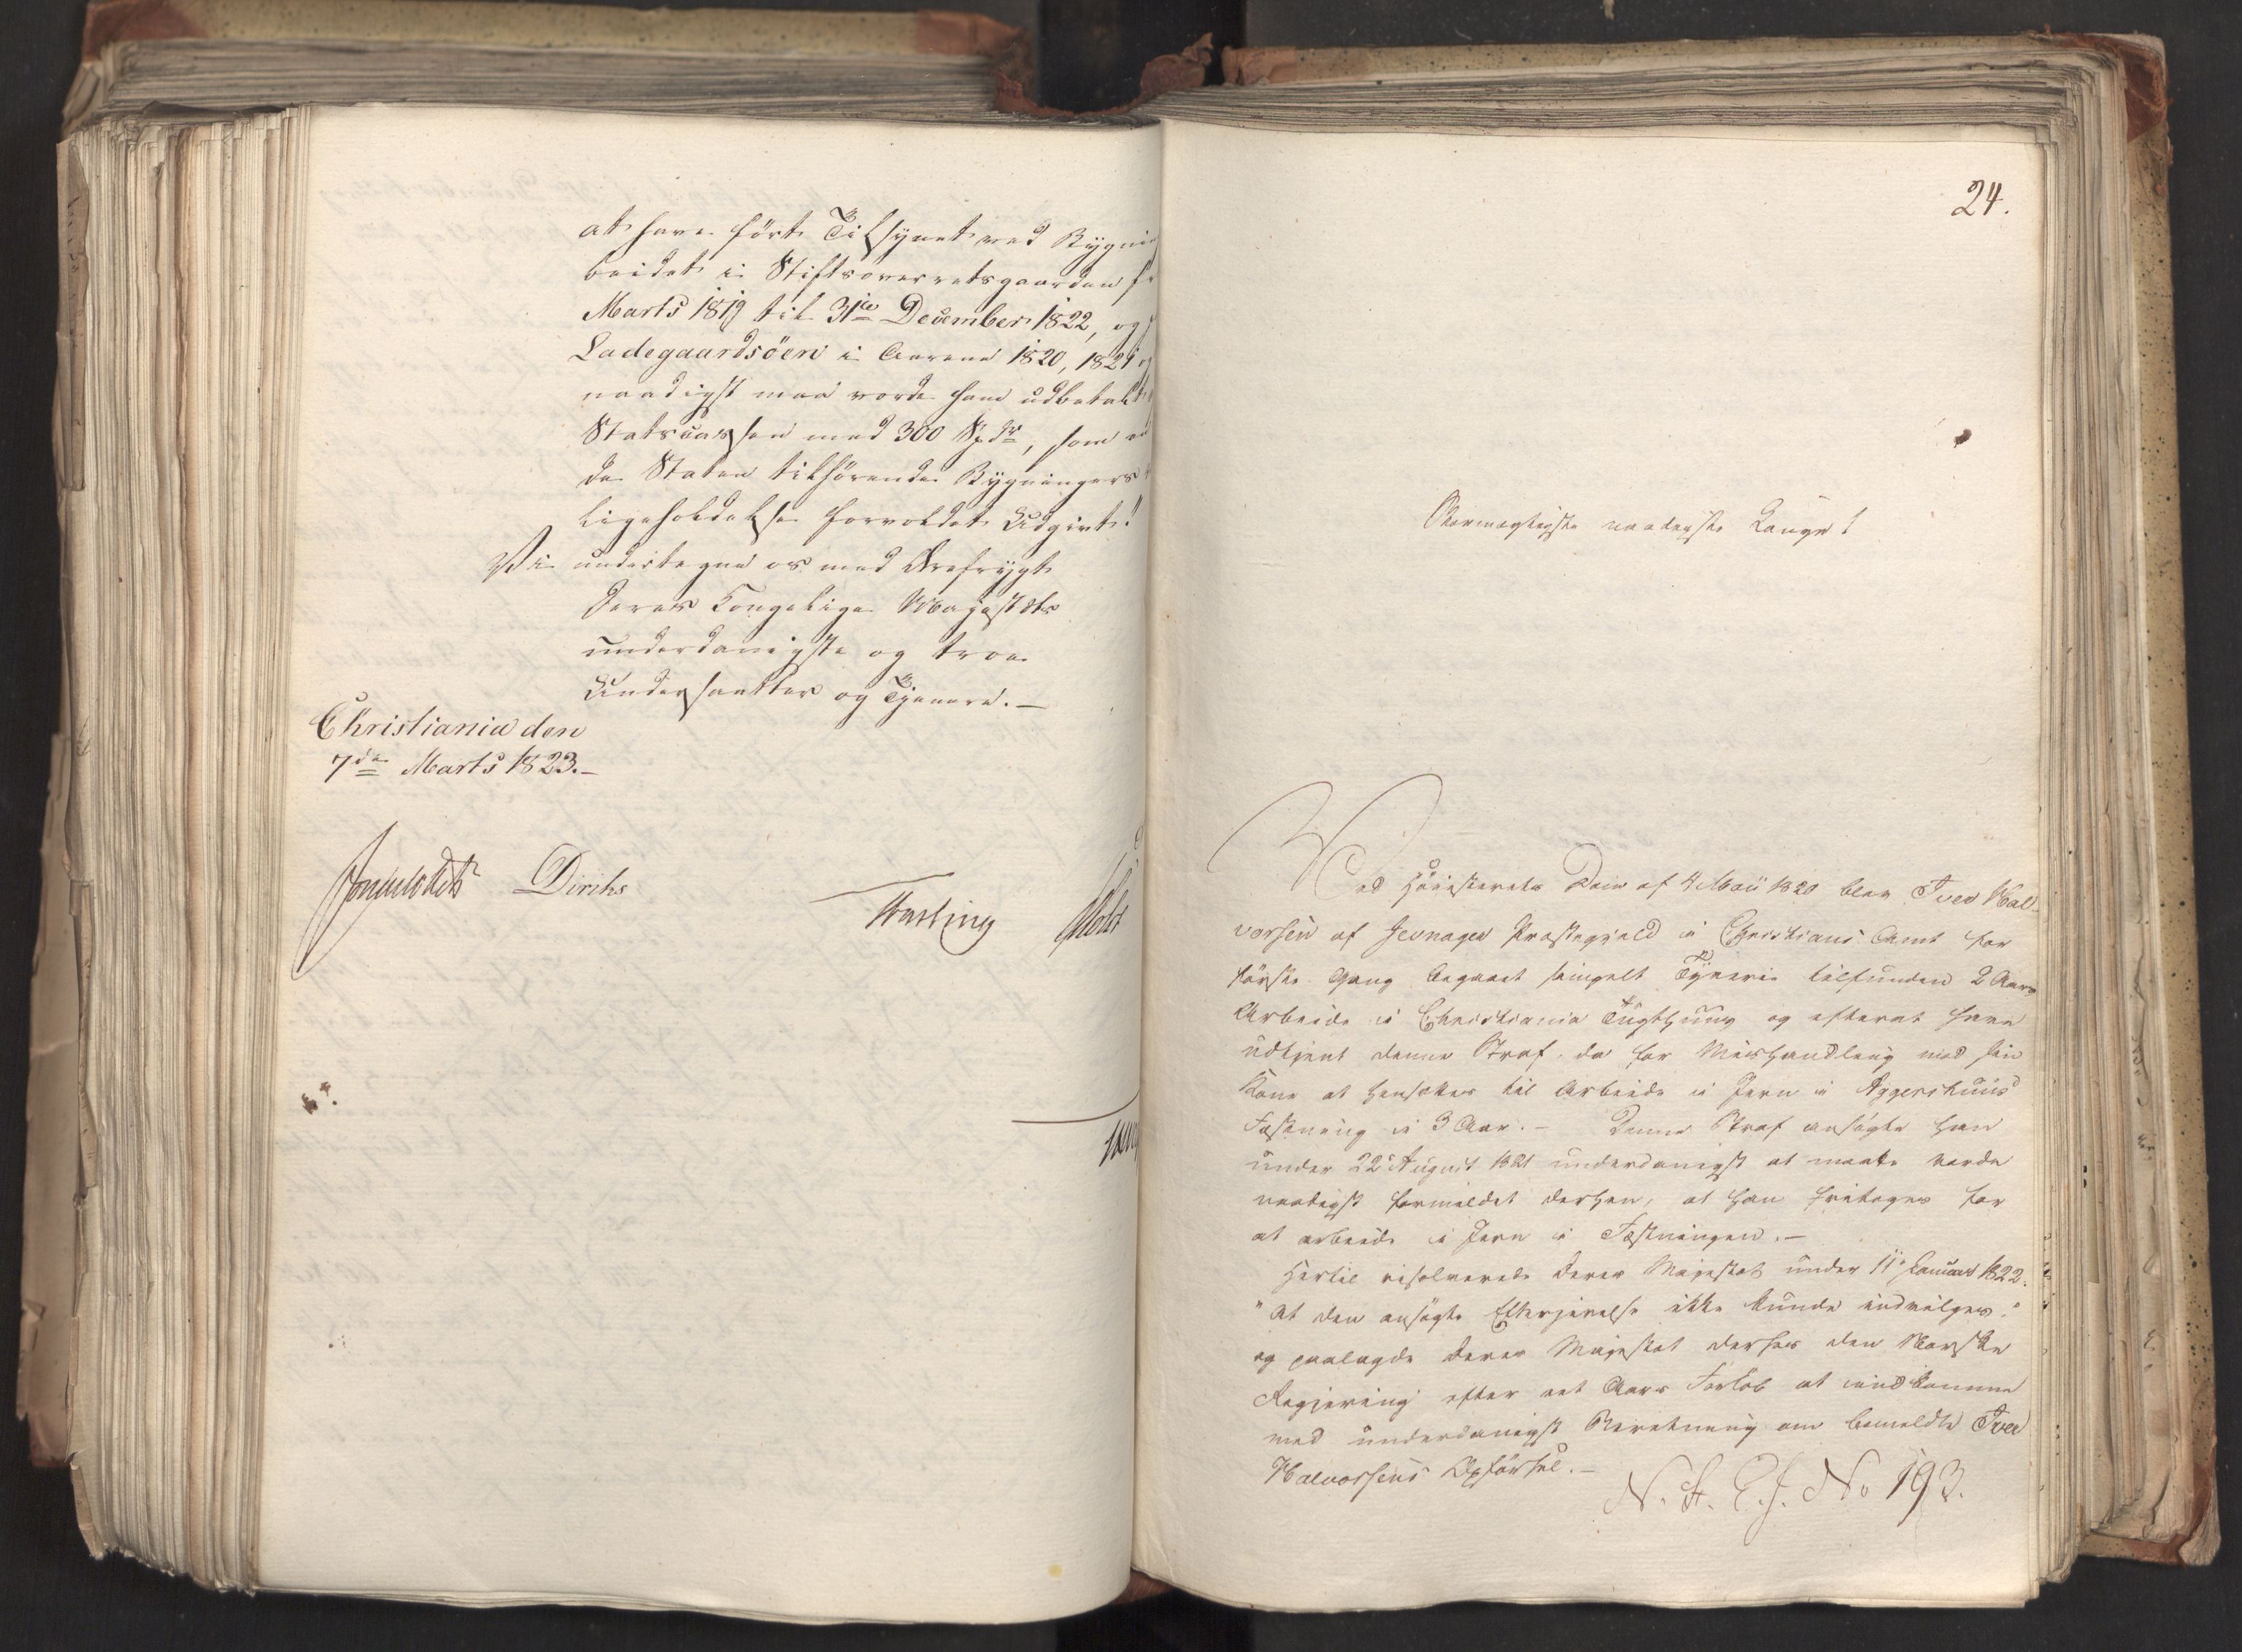 at have ført Tilsynet ved Bygni
beidet i Stiftsoverretsgaarden fr
Marts 1819 til 31te December 1822, og
Ladegaardsöen i Aarene 1820, 1821 og
naadigst maa vorde ham udbetalt
Statscassen med 300 Spdr, som en
de Staten tilhørende Bygningers
ligeholdelse forvoldet Udgivt."
Vi undertegne os med Ærefrygt
Deres Kongelige Majestæts
underdanigste og troe
Undersaatter og Tjenere. —
Christiania den
7de Marts 1823. —
Sommerhielm Diriks
Krefting Holst
24.
Stormægtigste naadigste Konge!
Ved Høiesterets Dom af 4 Maii 1820 blev Iver Hal-
vorsen af Jevnager Præstegjeld i Christians Amt for
første Gang begaaet simpelt Tyverie tilfunden 2 Aars
Arbeide i Christiania Tugthuus og efterat have
udtjent denne Straf, da for Mishandling mod sin
Kone at hensættes til Arbeide i Jern i Aggershuus
Fæstning i 3 Aar. — Denne Straf ansøgte han
under 22 August 1821 underdanigst at maatte vorde
naadigst formildet derhen, at han fritages for
at arbeide i Jern i Fæstningen. —
Hertil resolverede Deres Majestæt under 11 Januar 1822.
"At den ansøgte Eftergivelse ikke kunde indvilges."
og paalagde Deres Majestæt derhos den Norske
Regjering efter eet Aars Forløb at indkomme
med underdanigst Beretning om bemeldte Iver
Halvorsens Opførsel. —
N. St. E. J. No 193.